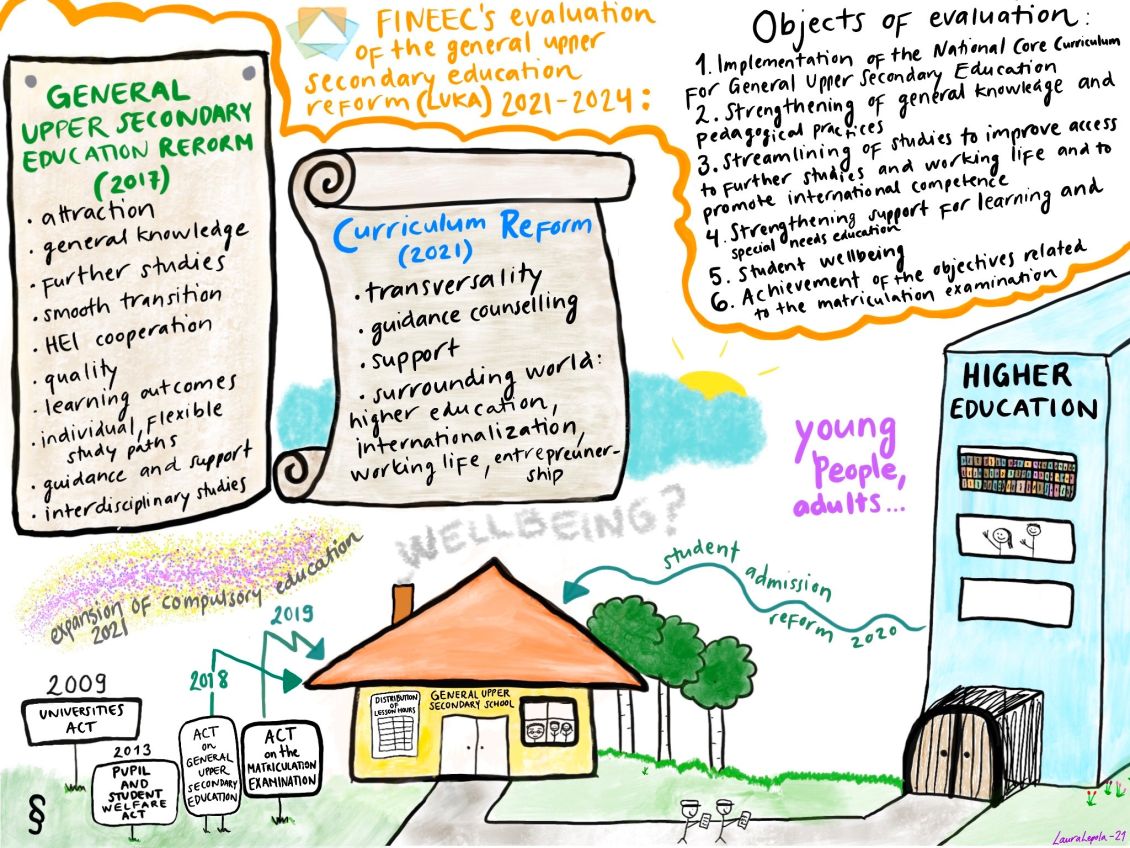 FINEEC's evaluation
of the general upper
secondary education
reform (LUKA) 2021-2024:
Objects of evaluation:
1. Implementation of the National Core Curriculum
for General Upper Secondary Education
2. Strengthening of general knowledge and
pedagogical practices
3. Streamlining of studies to improve access
to further studies and working life and to
promote international competence
4. Strengthening support for learning and
special needs education
5. Student wellbeing
6. Achievement of the objectives related
to the matriculation examination
GENERAL
UPPER SECONDARY
EDUCATION RERORM
(2017)
• attraction
• general knowledge
• further studies
• smooth transition
• HEI cooperation
• quality
• learning outcomes
• individual, flexible
study paths
• guidance and support
• interdisciplinary studies
Curriculum Reform
(2021)
• transversality
• guidance counselling
• support
• surrounding world:
higher education,
internationalization,
working life, entrepreuner-
ship
HIGHER
EDUCATION
young
people,
adults...
WELLBEING?
expansion of compulsory education
2021
student admission
reform 2020
2019
2018
2009
UNIVERSITIES
ACT
2013
PUPIL
AND
STUDENT
WELFARE
ACT
ACT
on
GENERAL
UPPER
SECONDARY
EDUCATION
ACT
on the
MATRICULATION
EXAMINATION
DISTRIBUTION
OF
LESSON HOURS
GENERAL UPPER
SECONDARY SCHOOL
§
LauraLepola-21